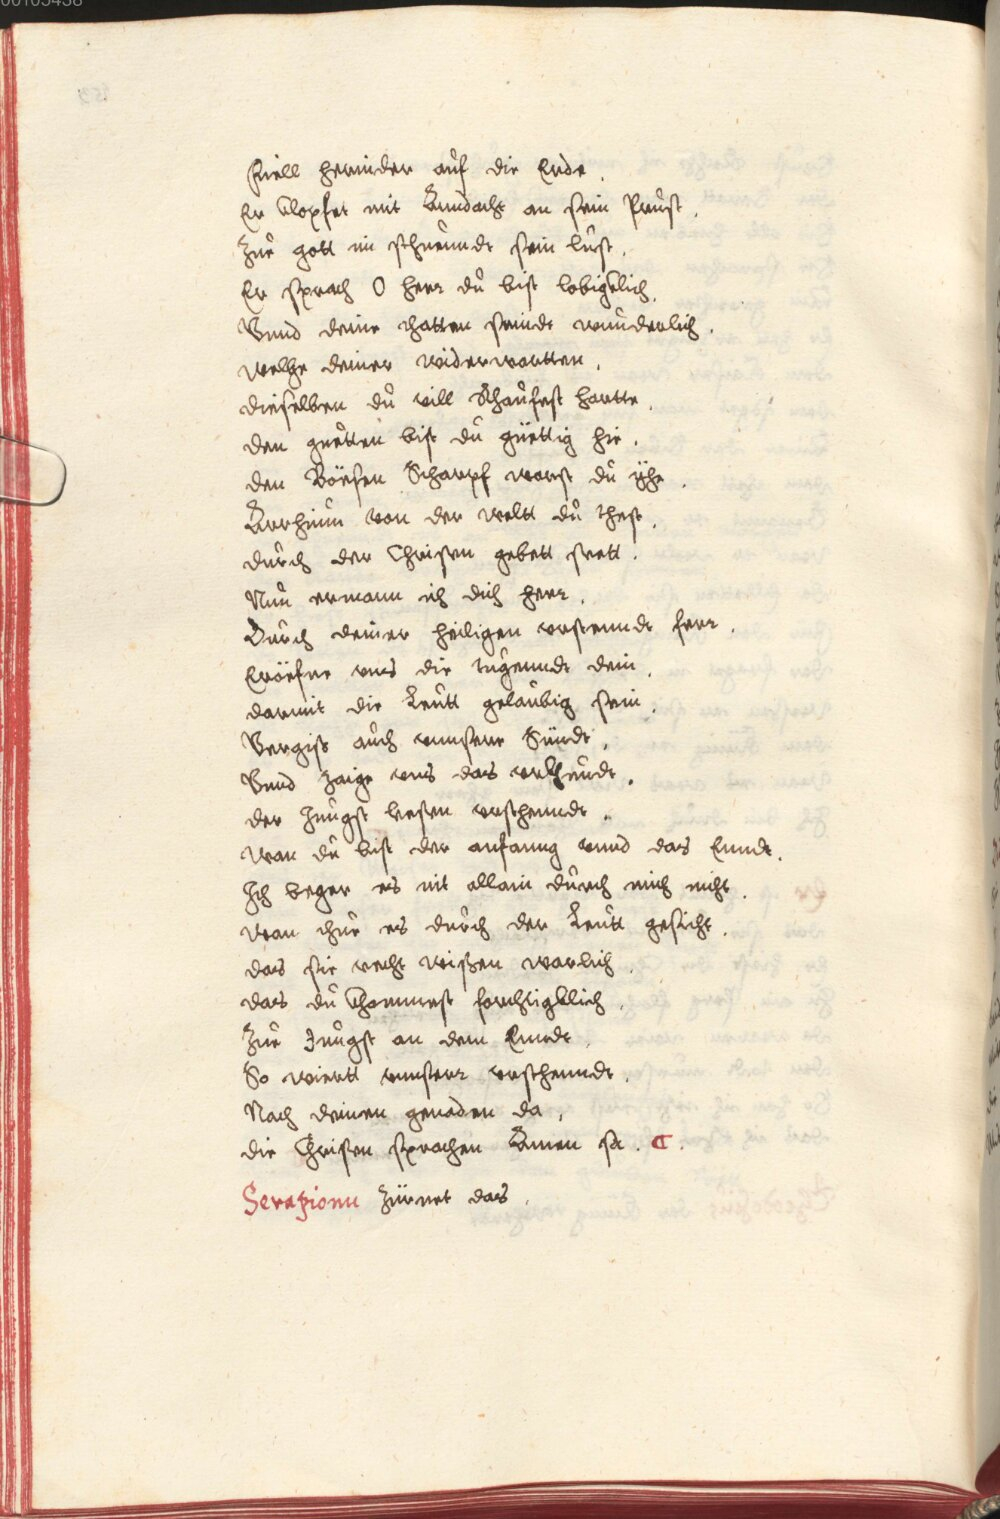 00103438
Fiell hernider auf die Erde.
Er klopfet mit Anndacht an sein Prust.
Zue gott im schreundt sein lust.
Er sprach O herr du bist lobigklich.
Vnnd deine thatten seindt wunderlich.
Welhe deiner widerwartten.
dieselben du vill schaufest hartte.
den guetten bist du güettig hie.
den Böesen Scharpf warst du yhe.
Arrhium von der weltt du thest.
durch der Christen gebett stett.
Nun ermann ich dich herr.
Durch deiner heiligen vrstenndt ferr.
Eröefne vns die tugenndt dein.
darmit die Leutt gelaubig sein.
Vergiss auch vnnsere Sündt.
Vnnd zaige vns das vrkhundt.
der Jungst lesten vrstenndt.
Wan du bist der anfanng vnnd das Ennde.
Ich beger es nit allain durch mich nicht.
Wan thue es durch der Leutt gesicht.
das sie recht wissen warlich.
das du khommest forchtigklich.
Zue Jungst an dem Ennde.
So wiertt vnnsere vrstenndt.
Nach deinen genaden da.
die Christen sprachen Amen sa.
Serapionn zürnet das.